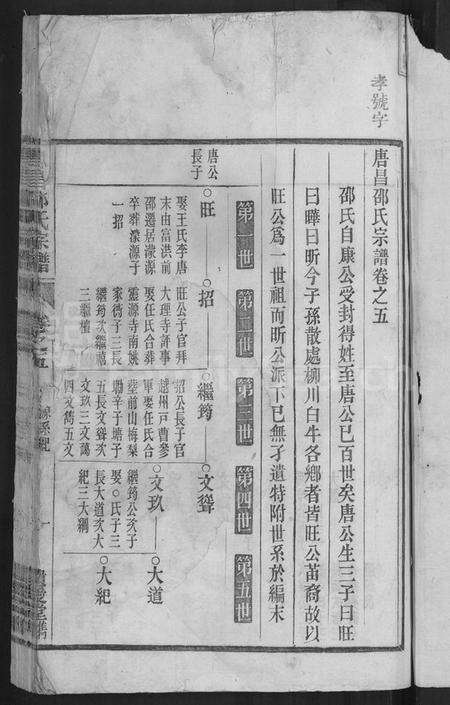 孝號字
唐昌邵氏宗譜卷之五
邵氏自康公受封得姓至唐公已百世矣唐公生三子曰旺
曰曄曰昕今子孫散處柳川白牛各鄉者皆旺公苗裔故以
旺公為一世祖而昕公派下已無孑遺特附世系於編末
第一世 第二世 第三世 第四世 第五世
唐公長子
○旺 ○招 ○繼筠 ○文聳
娶王氏李唐
末由富洪前
邵遷居濛源
卒葬濛源子
一招
旺公子官拜
大理寺評事
娶任氏合葬
靈源寺南姚
家衖子三長
繼筠次繼蔿
三繼
招公長子官
越州戸曹參
軍娶任氏合
葬前山梅梨
塢辛子塘子
五長文聳次
文玖三文萬
四文雋五文
○文玖 ○大道
繼筠公次子
娶○氏子三
長大道次大
紀三大綱
○大紀